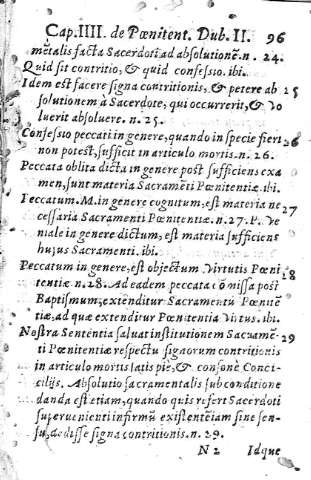 Cap. IIII. de Pœnitent. Dub. II. 96
mẽtalis facta Sacerdoti ad absolutionẽ. n. 24.
Quid sit contritio, & quid confessio. ibi.
Idem est facere signa contritionis, & petere ab 25
solutionem à Sacerdote, qui occurrerit, & vo
luerit absoluere. n. 25.
Confessio peccati in genere, quando in specie fieri 26
non potest, sufficit in articulo mortis. n. 26.
Peccata oblita dicta in genere post sufficiens exa
men, sunt materia Sacramẽti Pœnitentiæ. ibi.
Peccatum. M. in genere cognitum, est materia ne 27
cessaria Sacramenti Pœnitentiæ. n. 27. P. Ve
niale in genere dictum, est materia sufficiens
huius Sacramenti. ibi.
Peccatum in genere, est obiectum Virtutis Pœni 28
tentiæ. n. 28. Ad eadem peccata cõmissa post
Baptismum, extenditur Sacramentũ Pœnitẽ
tiæ, ad quæ extenditur Pœnitentia Virtus. ibi.
Nostra Sententia saluat institutionem Sacramẽ- 29
ti Pœnitentiæ respectu signorum contritionis
in articulo mortis satis piè, & consonè Conci-
cilijs. Absolutio sacramentalis sub conditione
danda est etiam, quando quis refert Sacerdoti
superuenienti infirmũ existentẽ iam sine sen-
su, dedisse signa contritionis. n. 29.
N 2 Idque